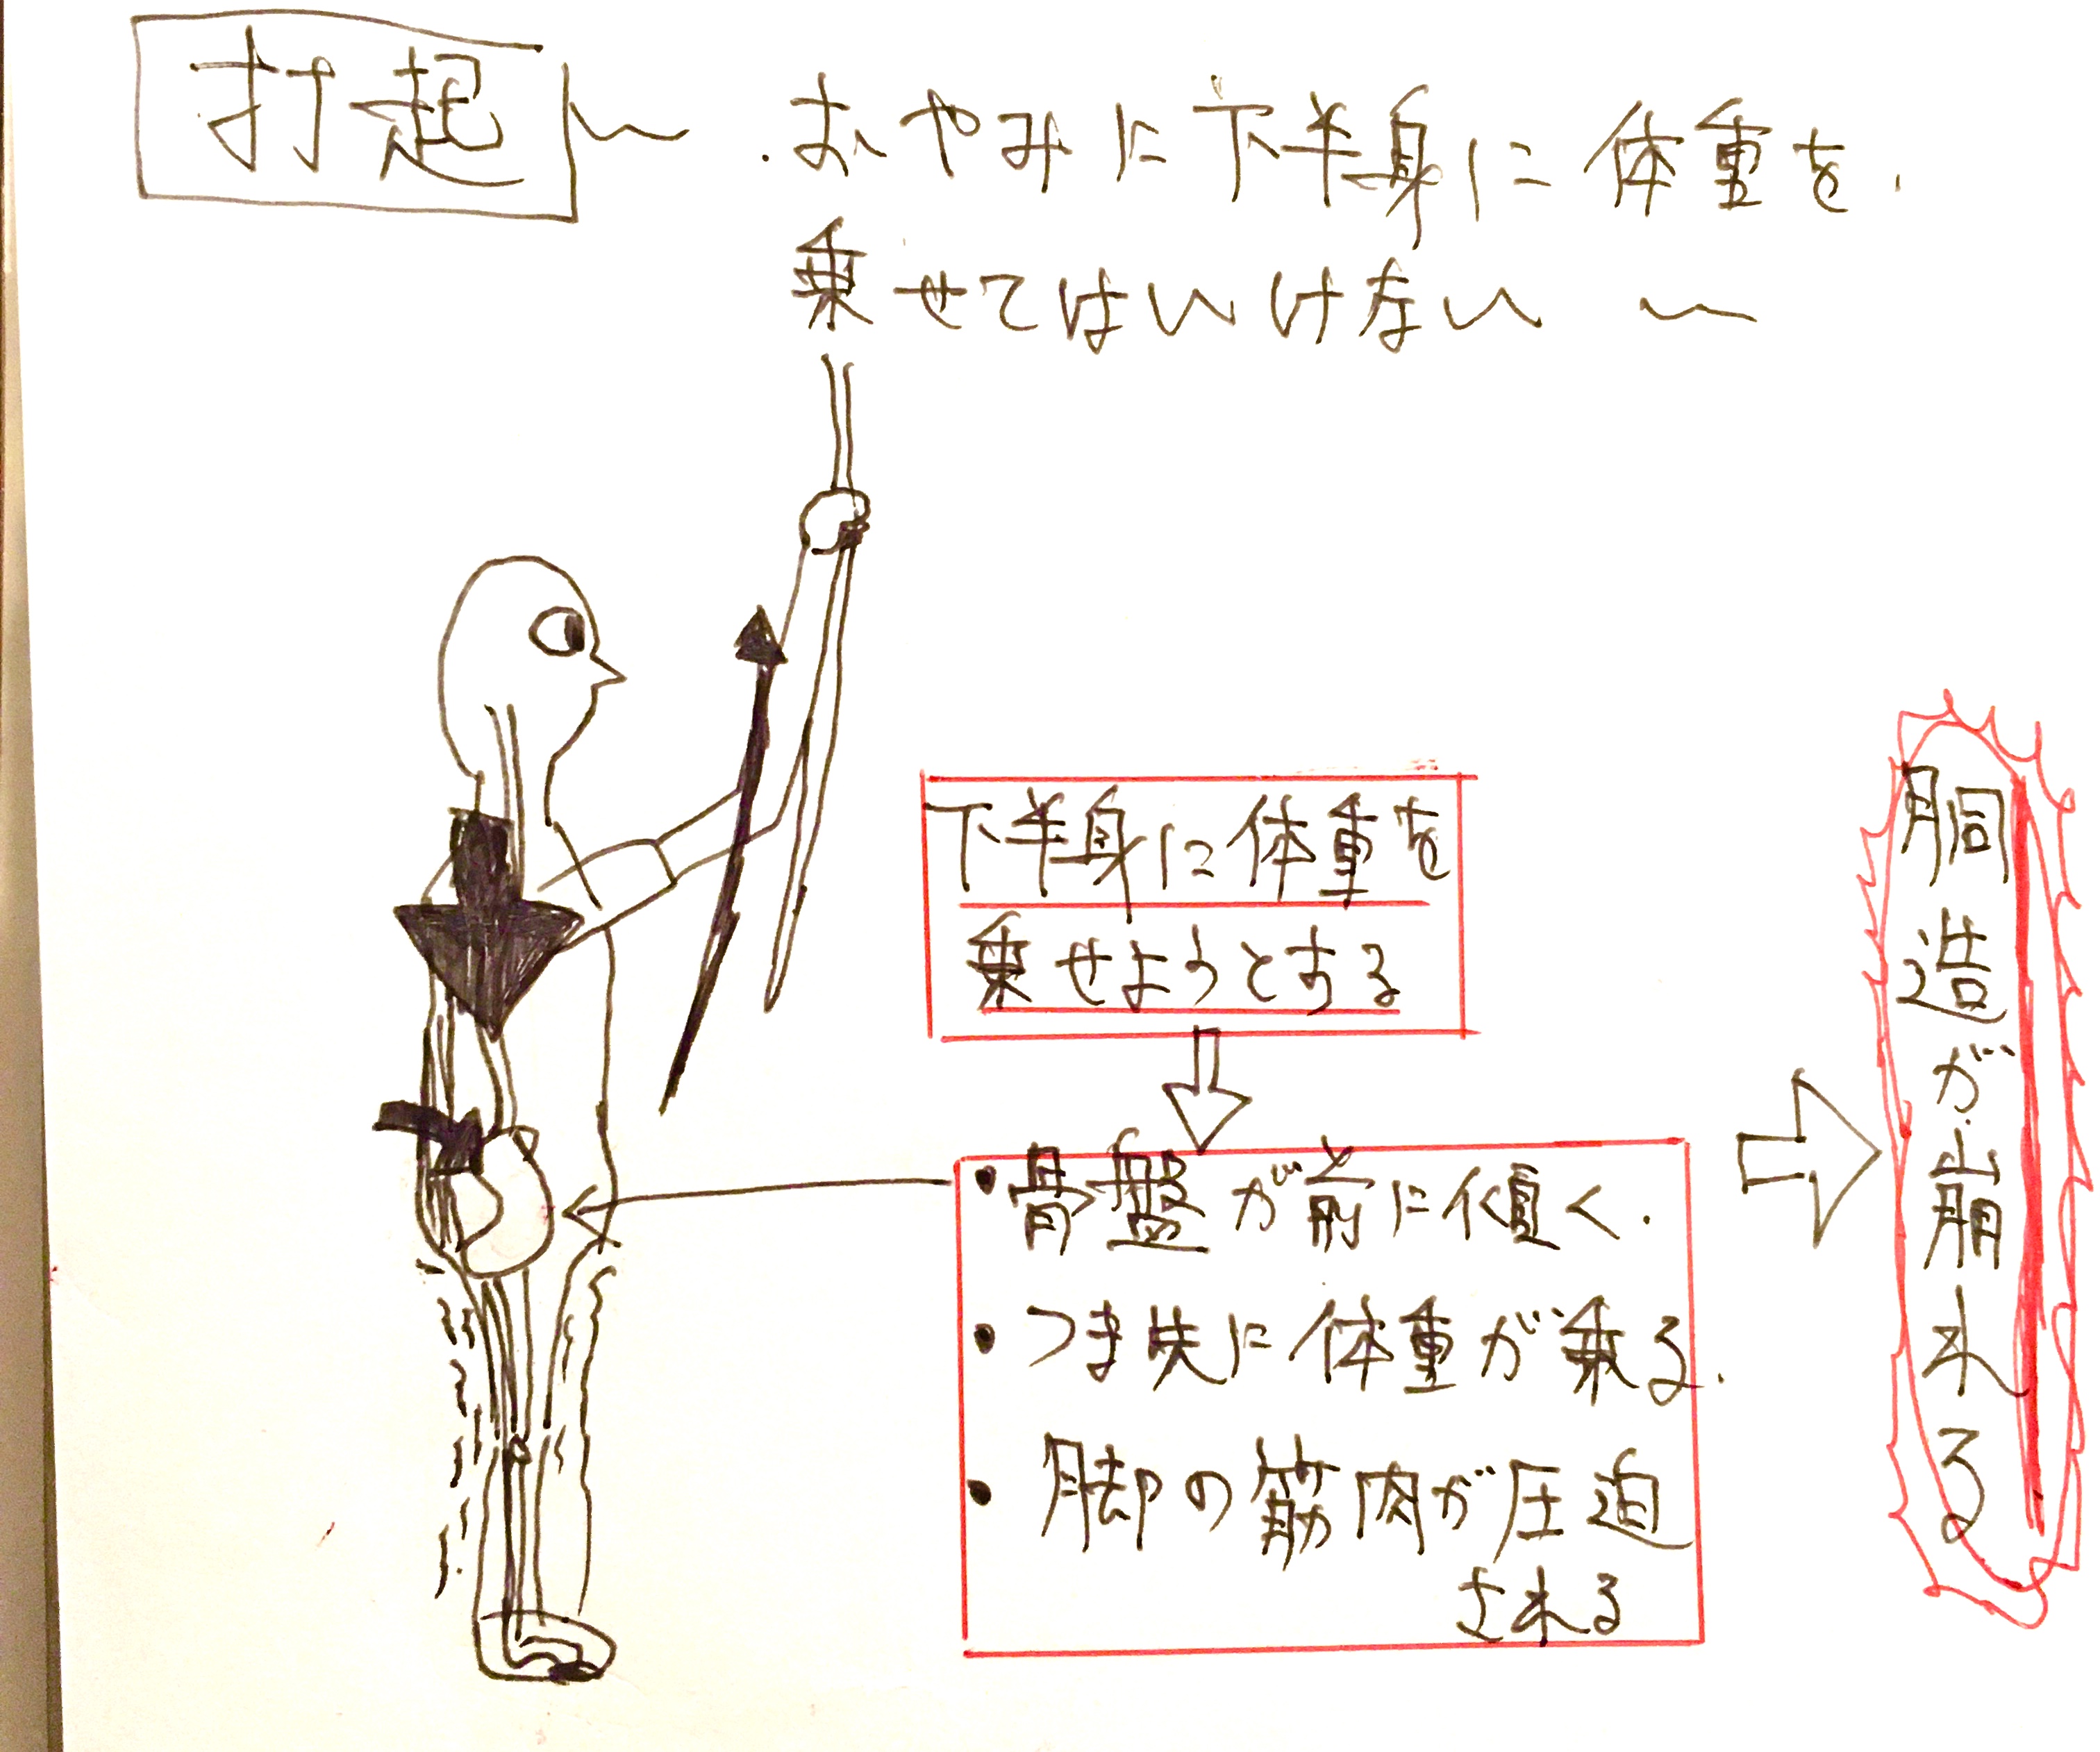 打起 〜 おやみに下半身に体重を
乗せてはいけない 〜
下半身に体重を
乗せようとする
・骨盤が前に傾く.
・つま先に体重が乗る.
・脚の筋肉が圧迫
される
胴造が崩れる